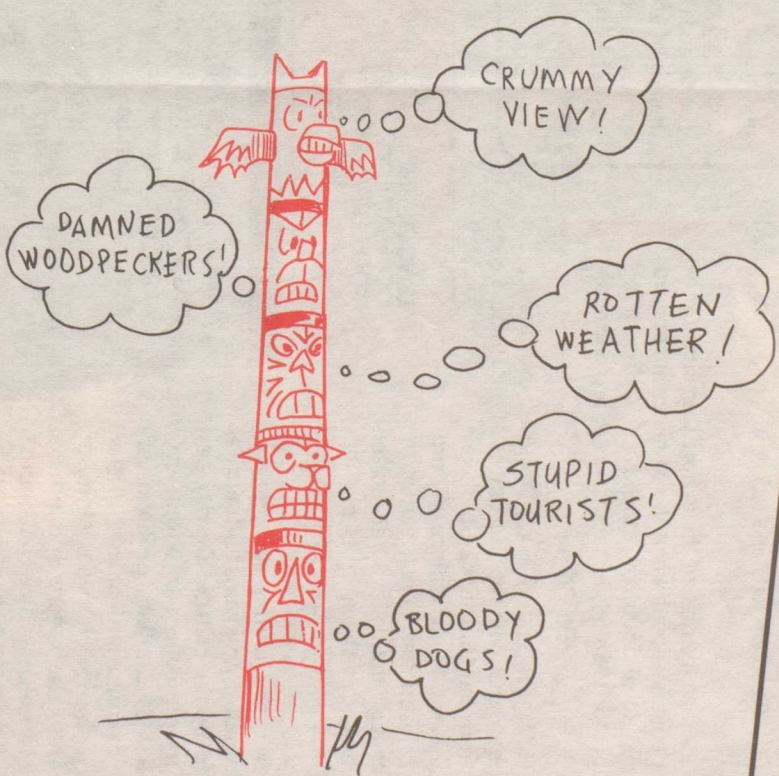 CRUMMY
VIEW!
DAMNED
WOODPECKERS!
ROTTEN
WEATHER!
STUPID
TOURISTS!
BLOODY
DOGS!